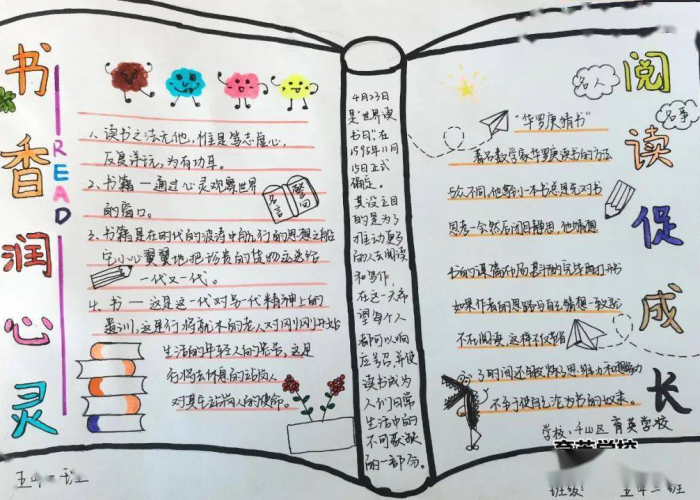 书香润心灵
READ
1、读书之法无他，惟是笃志虚心，
反复详玩，为有功耳。
2、书籍——通过心灵观察世界
的窗口。
名言
警句
3、书籍是在时代的波涛中航行的思想之船
它小心翼翼地把珍贵的货物运送给
一代又一代。
4、书——这是这一代对另一代精神上的
遗训，这是行将就木的老人对刚刚开始
生活的年轻人的忠告，这是
行将去休息的站岗人
对来
站岗人的使命。
五年一班
4月23日
是"世界读
书日"在
1995年11月
15日正式
确定。
其设立目
的是为了
推动更多
的人去阅读
和写作，
在这一天希
望每个人
都可以响
应号召，并使
读书成为
人们日常
生活中的
不可或缺
的一部分。
阅读促成长
名人
名事
"华罗庚猜书"
著名数学家华罗庚读书的方法
与众不同，他拿到一本书总是先对书
思考一会然后闭目静思，他猜想
书的谋篇布局
完毕再打开书
如果作者的思路与自己猜想一致就
不在阅读，这样不仅节省
了时间还锻炼了思维力和想象力
不至于使自己沦为书的奴隶。
学校：千山区育英学校
育英学校
班级：五年一班